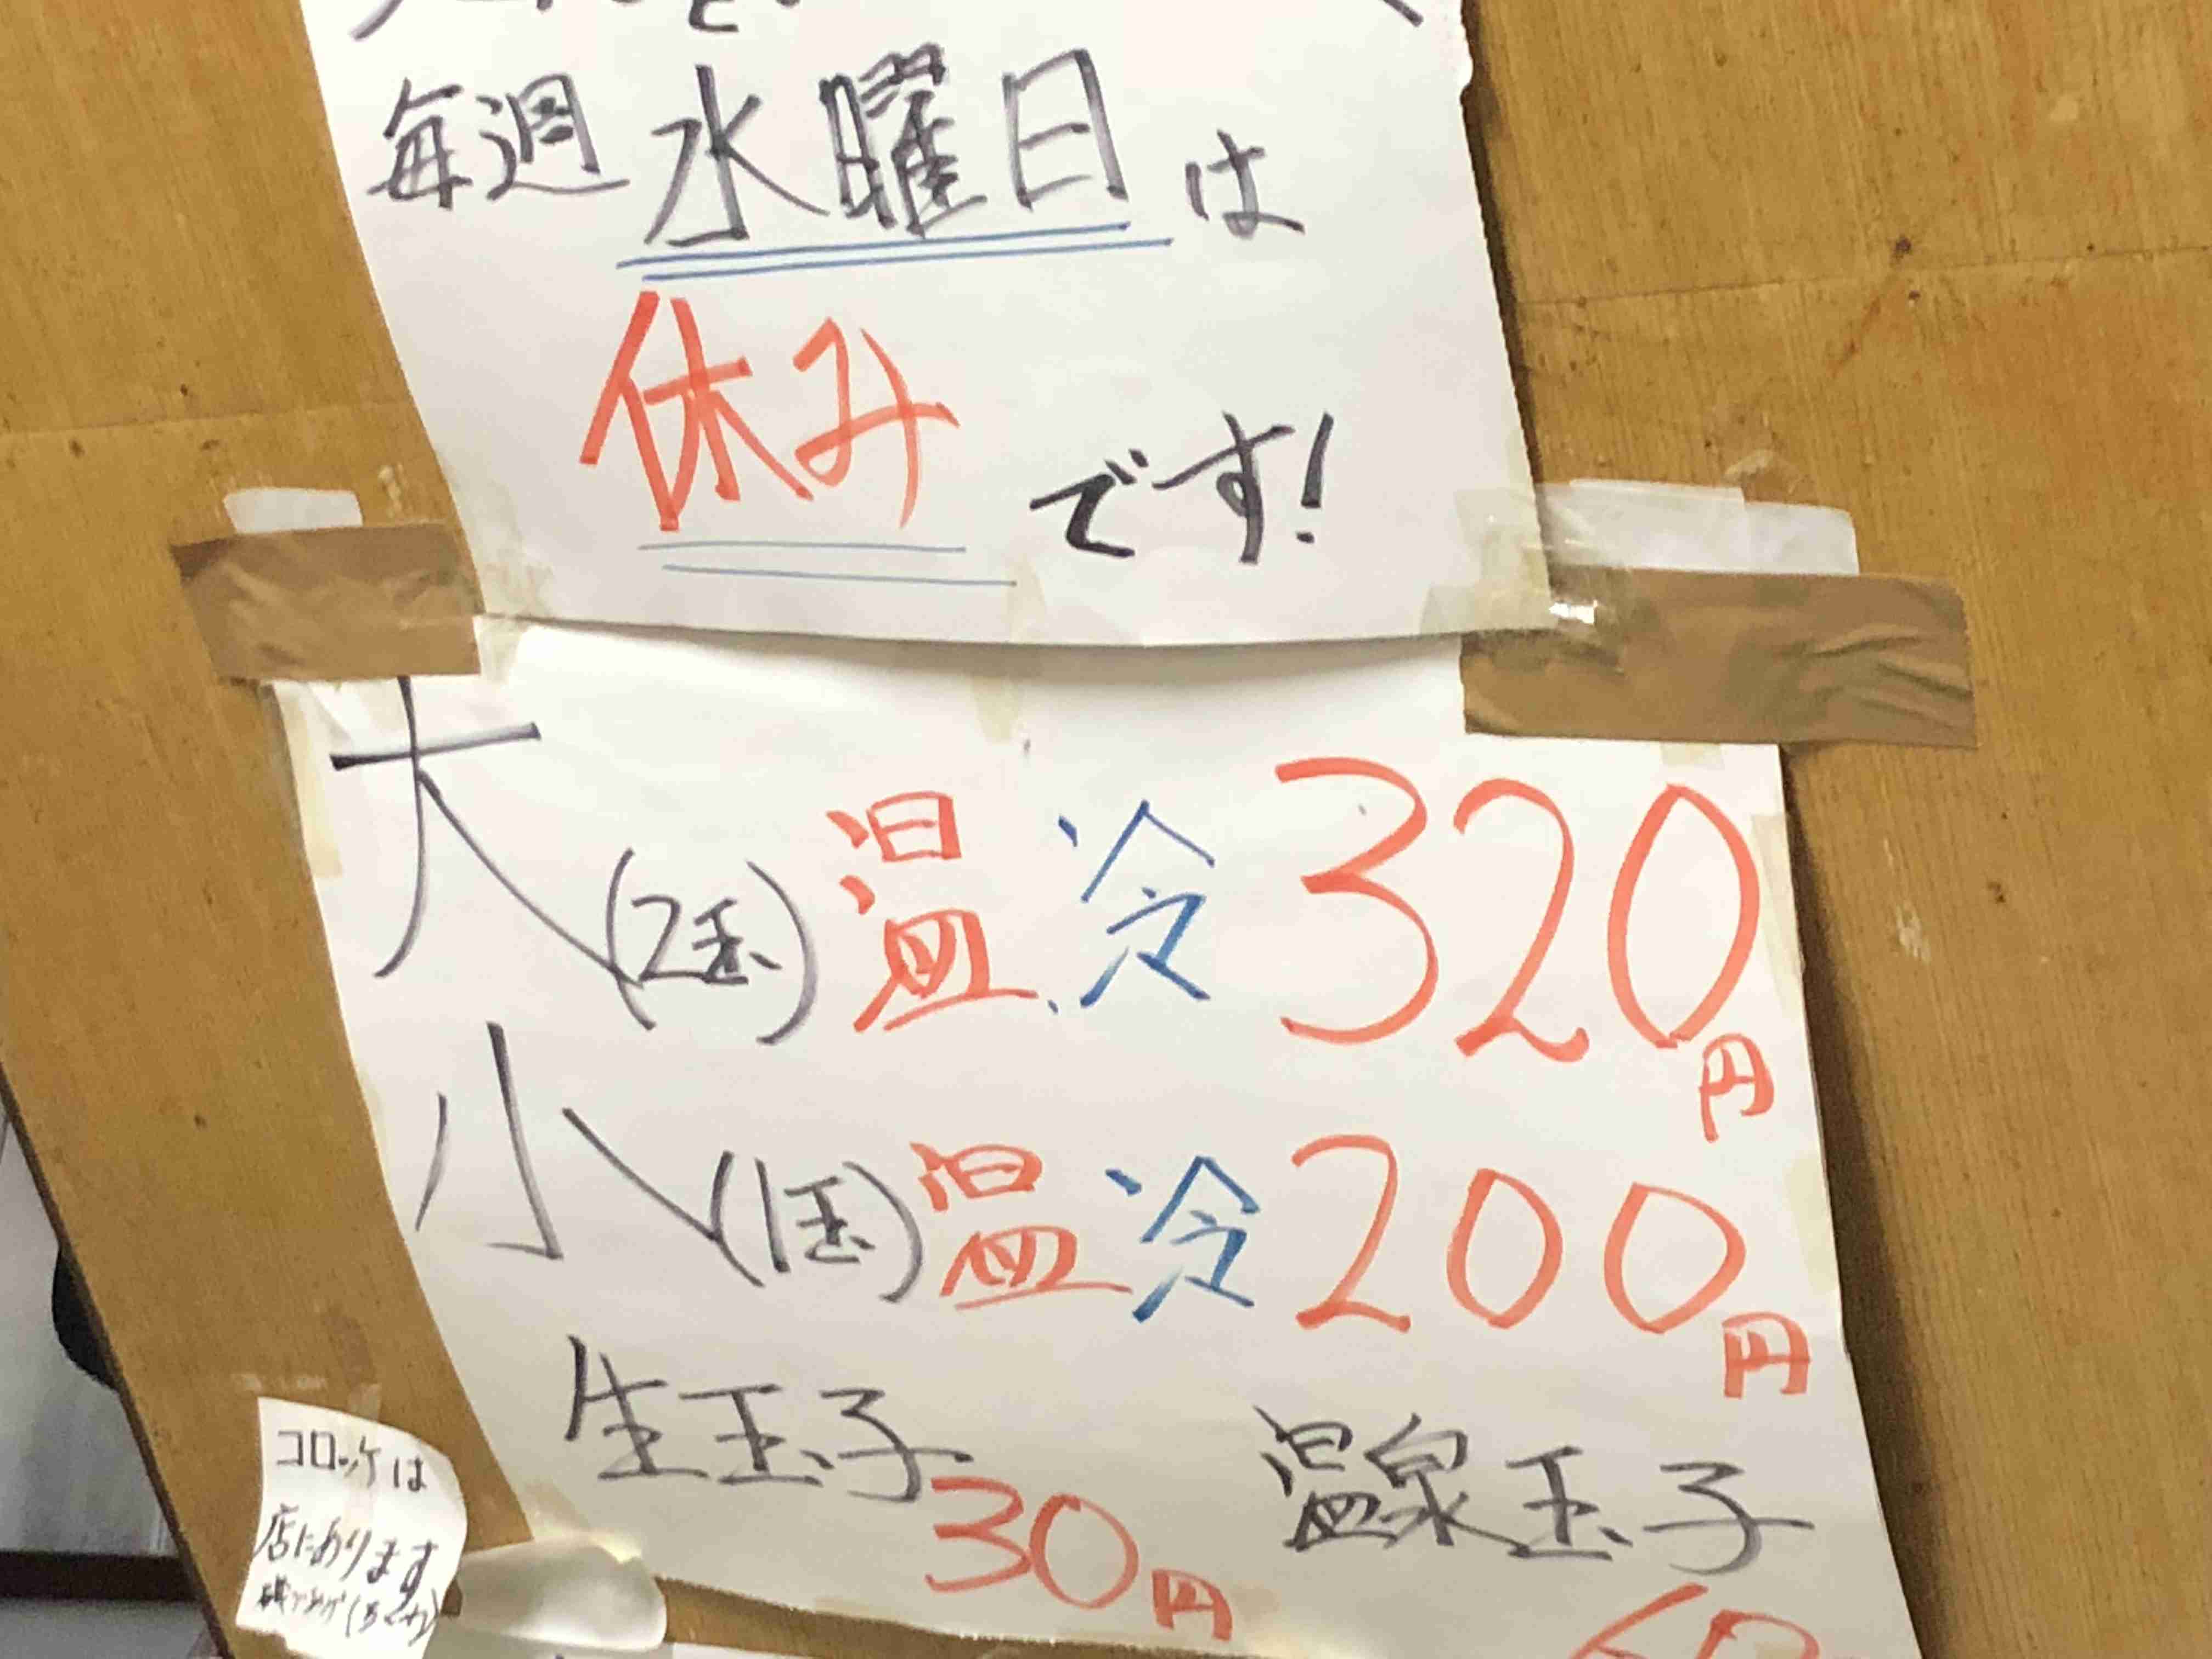 毎週水曜日は
休みです!
大(2玉)温.冷320円
小(1玉)温冷200円
生玉子 温泉玉子
30円
コロッケは
店にあります